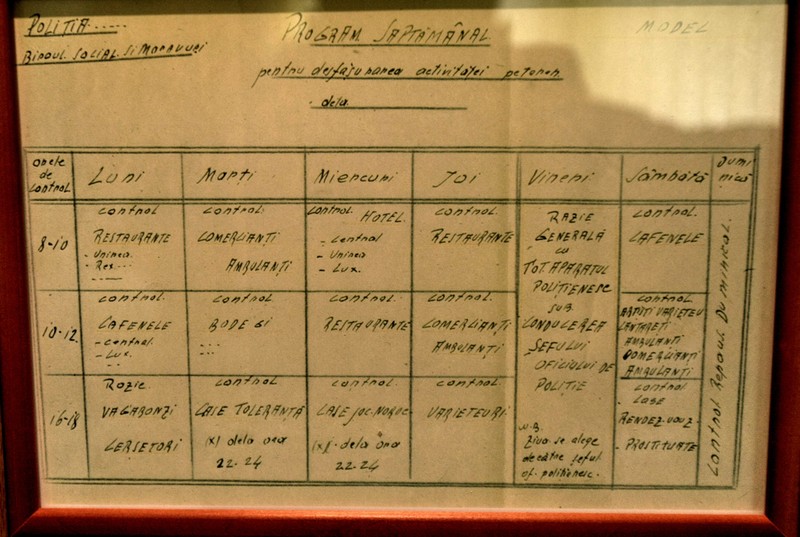 POLIȚIA......
Biroul Social și Moravuri
PROGRAM SĂPTĂMÂNAL
MODEL
pentru desfășurarea activităței
dela
Orele de control
Luni
Marți
Miercuri
Joi
Vineri
Sâmbătă
Duminică
8-10
control
RESTAURANTE
- Unirea
- Rex....
.....
control.
COMERCIANTI
AMBULANȚI
control. HOTEL.
- Central
- Unirea
- Lux.
control.
RESTAURANTE
RAZIE
GENERALĂ
cu
TOT. APARATUL
POLIȚIENESC
SUB
CONDUCEREA
ȘEFULUI
OFICIULUI DE
POLIȚIE
N.B.
Ziua se alege
de către șeful
of. polițienesc.
control.
CAFENELE
Control Repaul Duminical.
10-12
control.
CAFENELE
- central.
- Lux.
..
control
BODEGI
...
...
control.
RESTAURANTE
control.
COMERCIANȚI
AMBULANȚI
control
VARIETEU
AMBULANTI
COMERCIANȚI
AMBULANȚI
16-18
Razie.
VAGABONZI
CERSETORI
control
CASE TOLERANȚĂ
(x) dela ora
22-24
control
CASE JOC-NOROC
(x). dela ora
22-24
control
VARIETEURI
control
- CASE
RENDEZ-VOUZ-
- PROSTITUATE